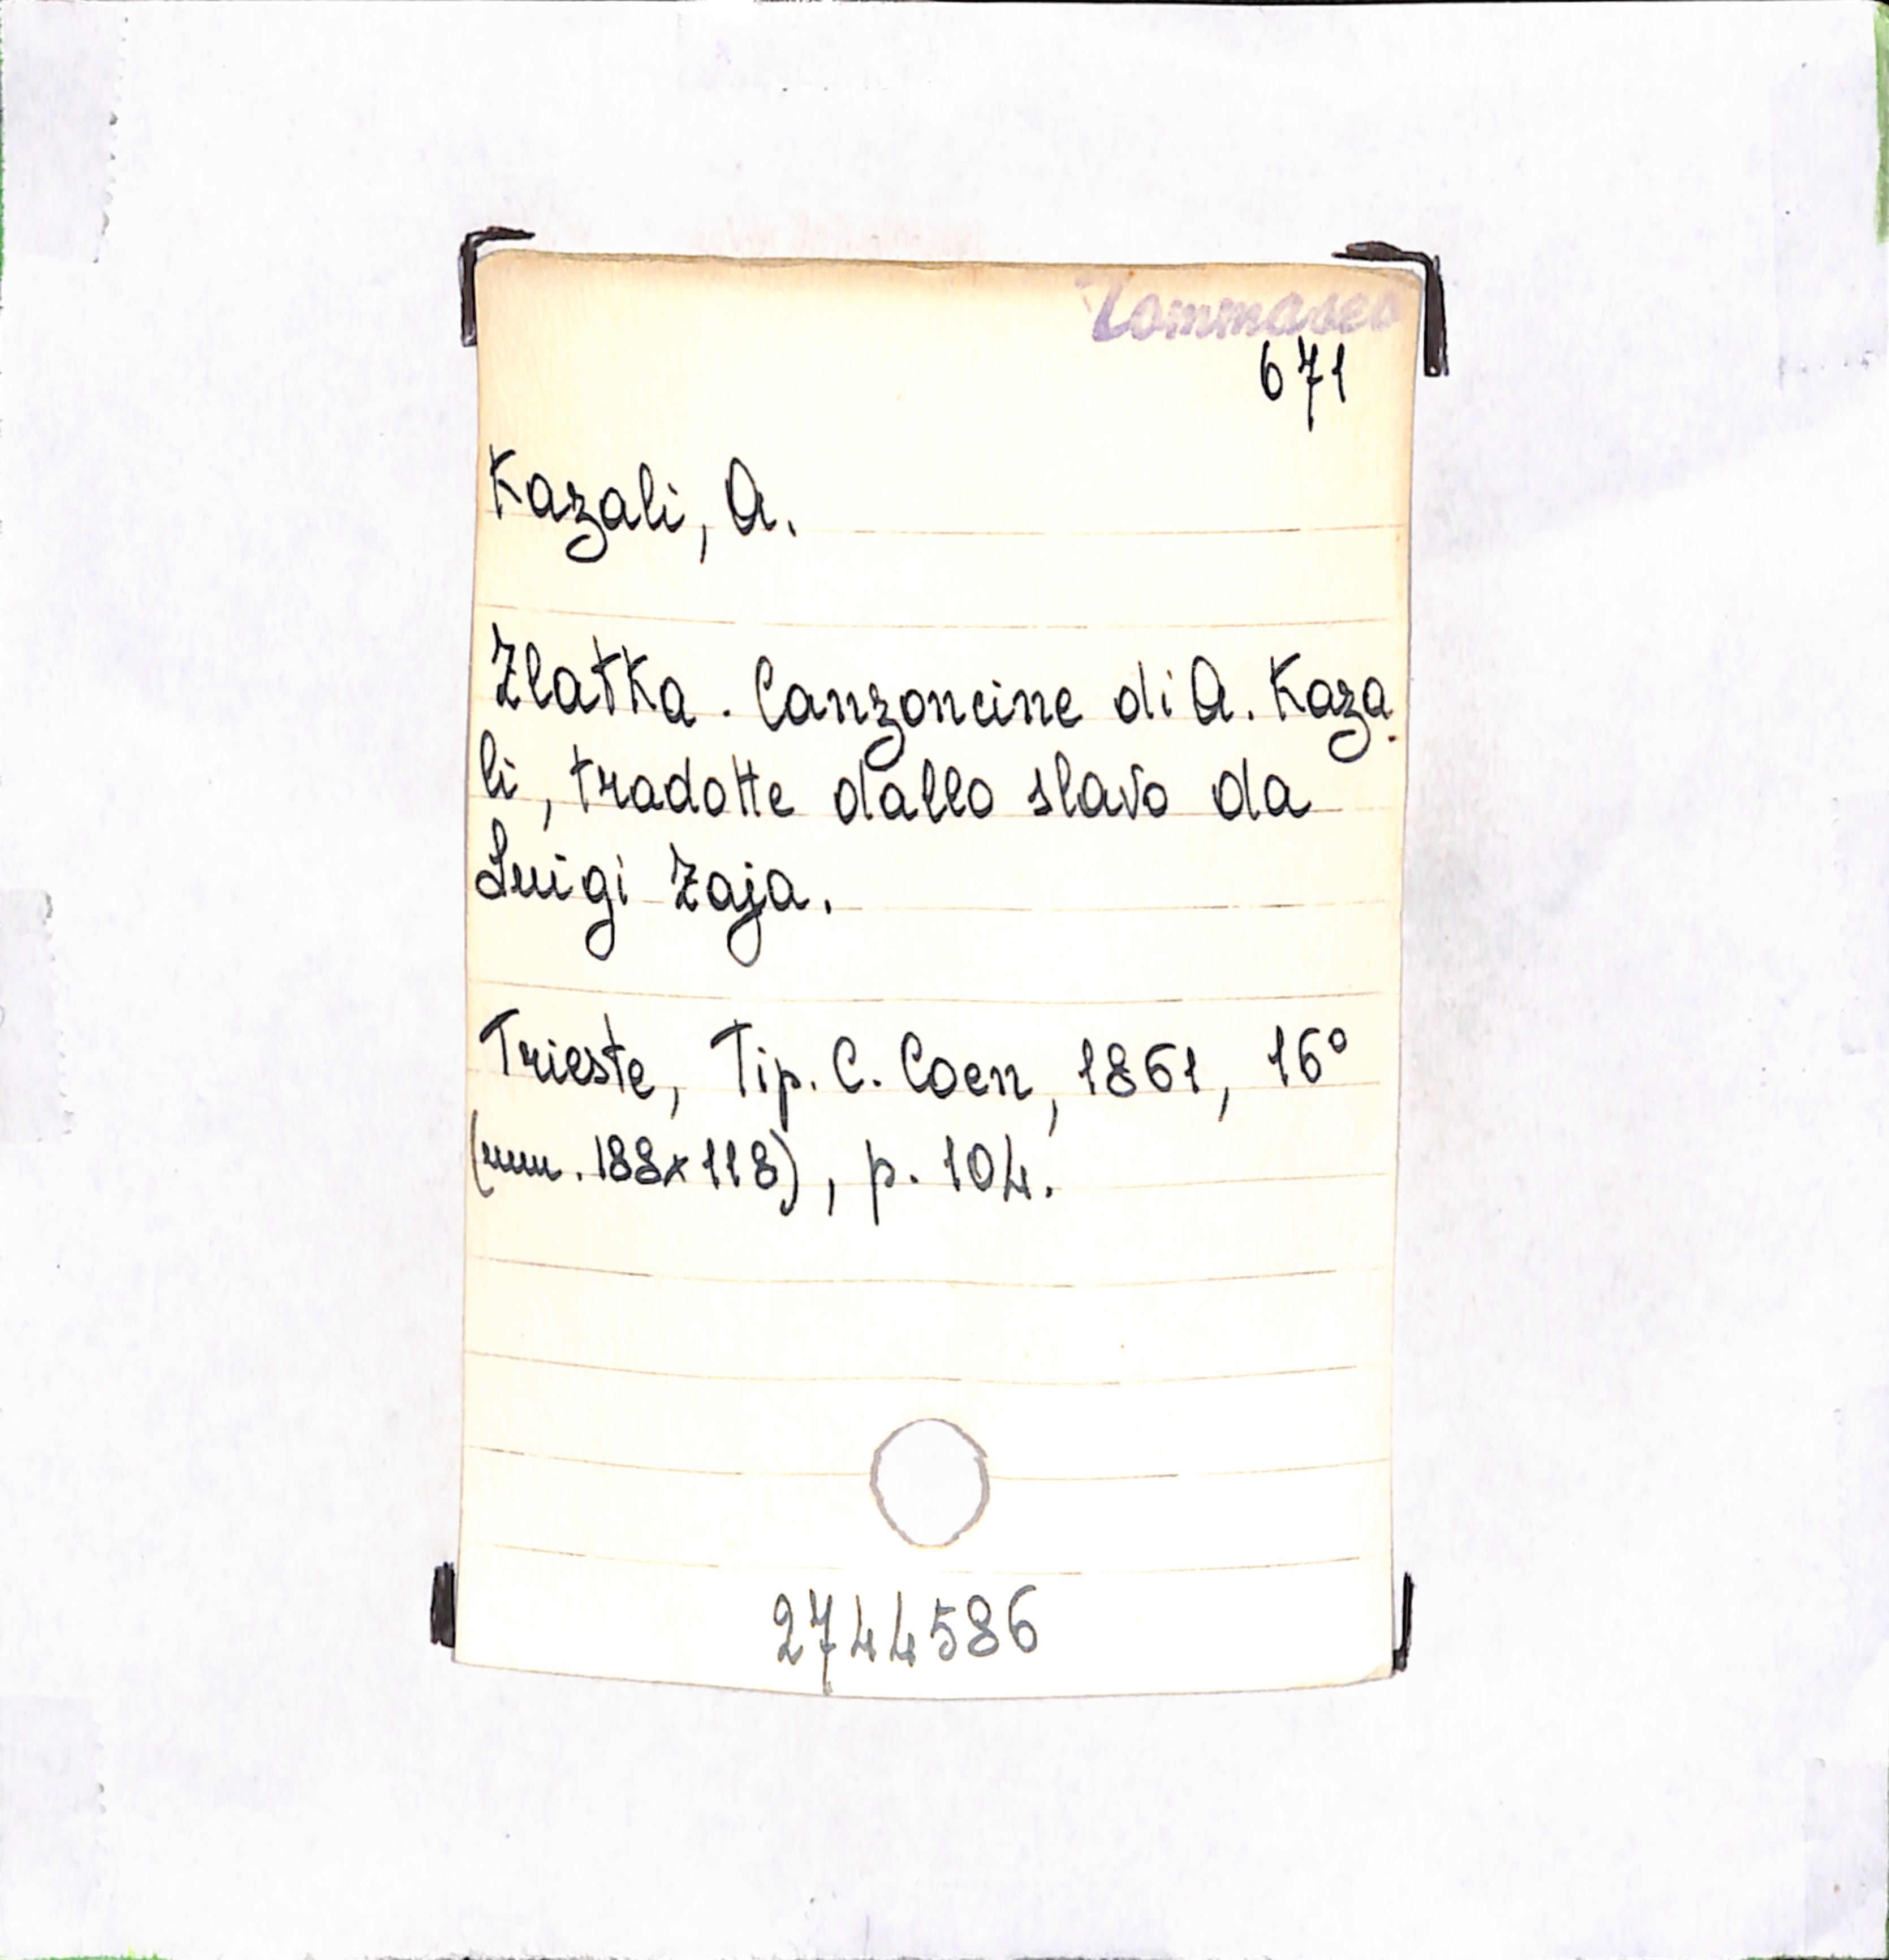 Tommaseo
671
Kazali, A.
Zlatka. Canzoncine di A. Kaza
li, tradotte dallo slavo da
Luigi Zaja.
Trieste, Tip. C. Coen, 1861, 16°
(mm. 188x118), p. 104.
2744586